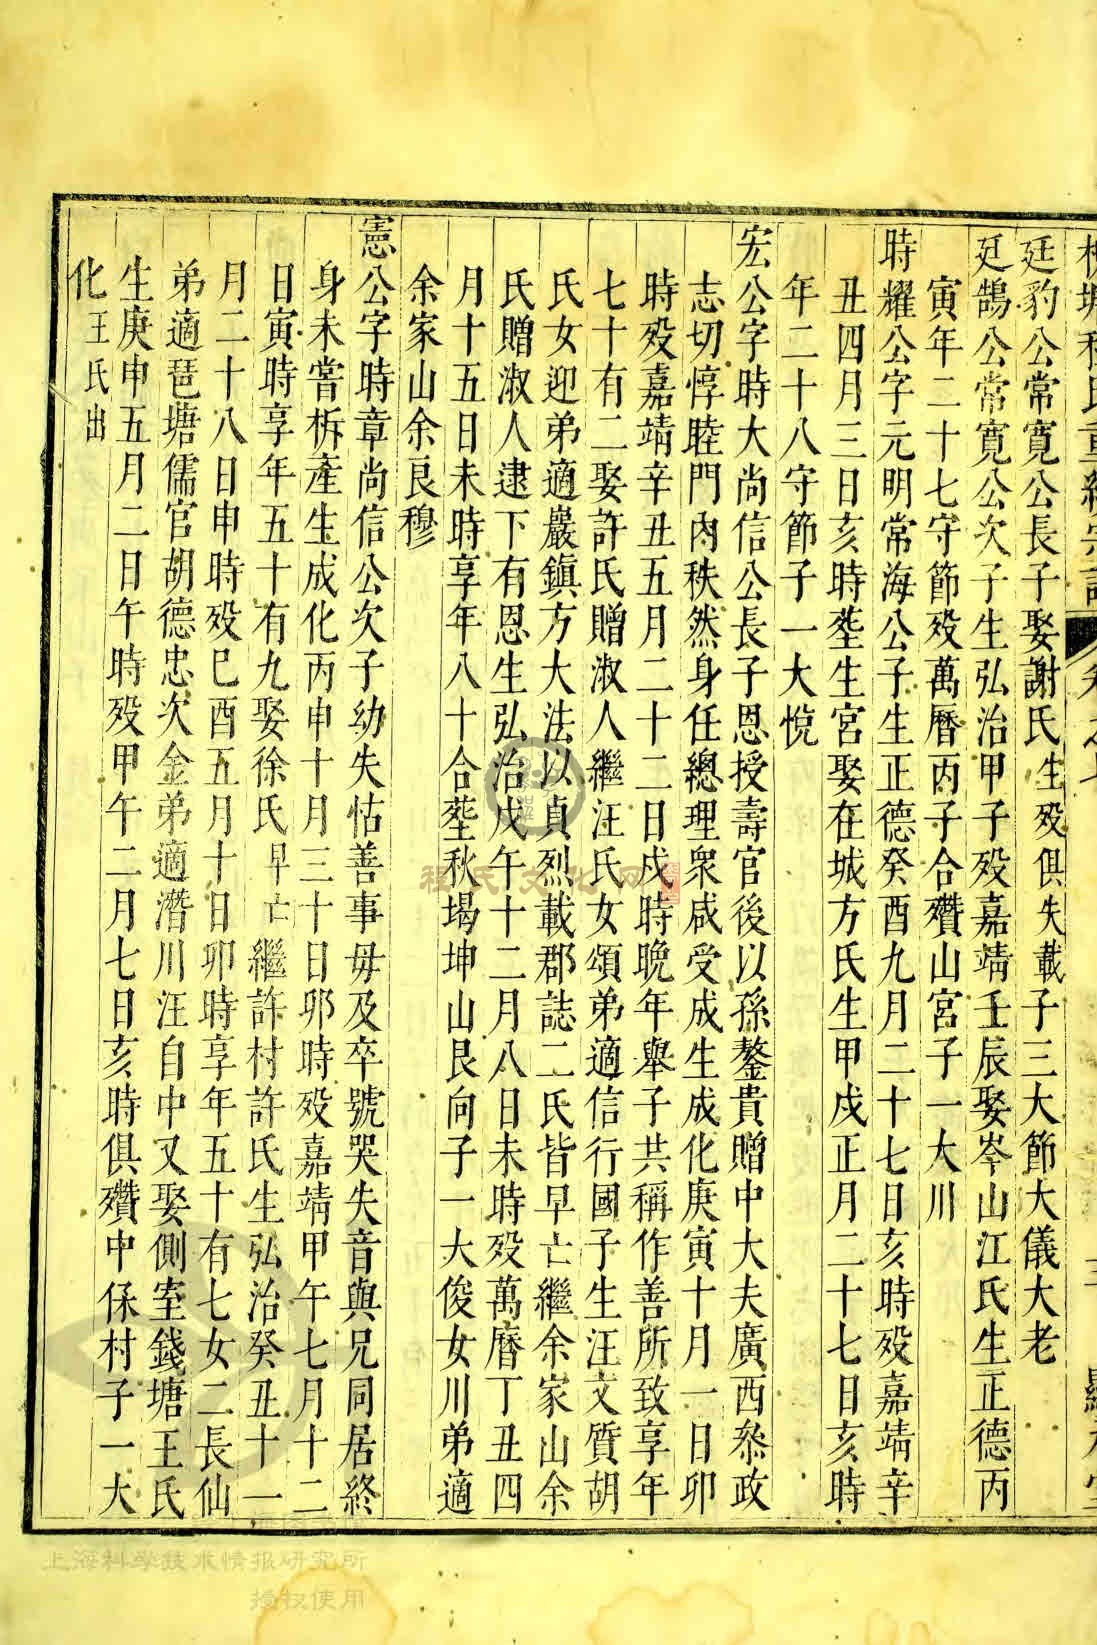 廷豹公常寬公長子娶謝氏生歿俱失載子三大節大儀大老
廷鵠公常寬公次子生弘治甲子歿嘉靖壬辰娶岑山江氏生正德丙
寅年二十七守節歿萬曆丙子合殯山宮子一大川
時耀公字元明常海公子生正德癸酉九月二十七日亥時歿嘉靖辛
丑四月三日亥時塟生宮娶在城方氏生甲戌正月二十七日亥時
年二十八守節子一大悅
宏公字時大尚信公長子恩授壽官後以孫鏊貴贈中大夫廣西叅政
志切惇睦門內秩然身任總理衆咸受成生成化庚寅十月一日卯
時歿嘉靖辛丑五月二十二日戌時晚年舉子共稱作善所致享年
七十有二娶許氏贈淑人繼汪氏女頌弟適信行國子生汪文質胡
氏女迎弟適巖鎮方大法以貞烈載郡誌二氏皆早亡繼余家山余
氏贈淑人逮下有恩生弘治戊午十二月八日未時歿萬曆丁丑四
月十五日未時享年八十合塟秋塢坤山艮向子一大俊女川弟適
余家山余良穆
憲公字時章尚信公次子幼失怙善事毋及卒號哭失音與兄同居終
身未嘗析產生成化丙申十月三十日卯時歿嘉靖甲午七月十二
日寅時享年五十有九娶徐氏早亡繼許村許氏生弘治癸丑十一
月二十八日申時歿巳酉五月十日卯時享年五十有七女二長仙
弟適琶塘儒官胡德忠次金弟適潛川汪自中又娶側室錢塘王氏
生庚申五月二日午時歿甲午二月七日亥時俱殯中保村子一大
化王氏出
程氏文化网
上海科学技术情报研究所
授权使用